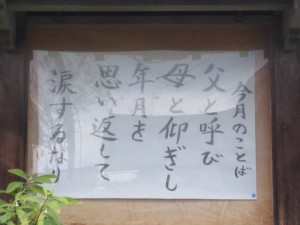 今月のことば
父と呼び
母と仰ぎし
年月を
思い返して
涙するなり